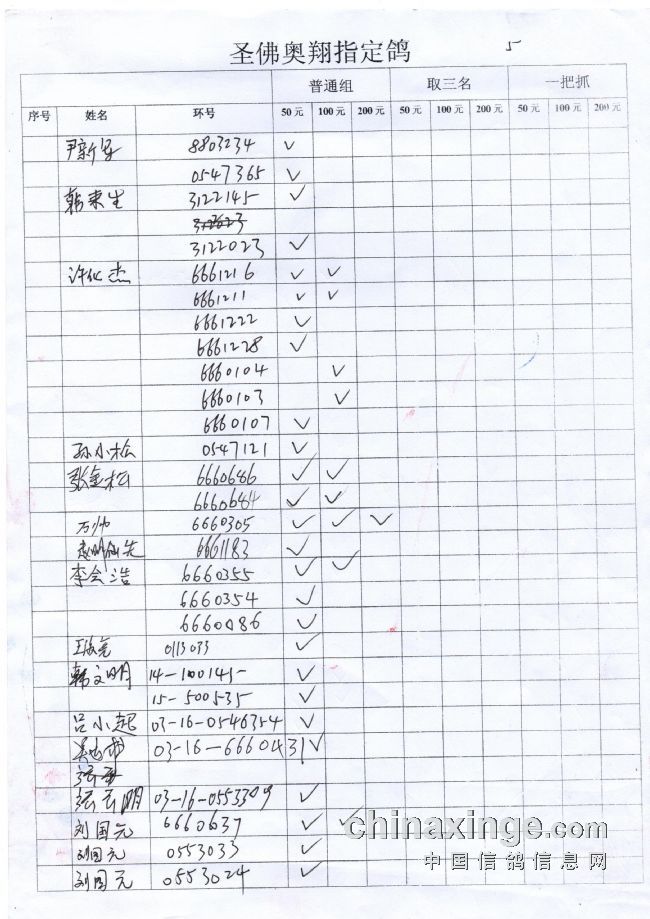 圣佛奥翔指定鸽 5
普通组 取三名 一把抓
序号 姓名 环号 50元 100元 200元 50元 100元 200元 50元 100元 200元
8803234 ✓
0547365 ✓
韩来生 3122145 ✓
3122023 ✓
杰 6661216 ✓ ✓
6661211 ✓ ✓
6661222 ✓
6661228 ✓
6660104 ✓
6660103 ✓
6660107 ✓
孙小松 0547121 ✓
张金松 6660686 ✓ ✓
6660684 ✓ ✓
万帅 6660305 ✓ ✓ ✓
6661183 ✓
李会浩 6660355 ✓ ✓
6660354 ✓
6660086 ✓
0113033 ✓
韩文明 14-100145- ✓
15-500535 ✓
吕小起 03-16-0546354 ✓
03-16-6660431 ✓
明 03-16-0553309 ✓
刘国元 6660637 ✓ ✓
刘国元 0553033 ✓
刘国元 0553024 ✓
chinaxinge.com
中国信鸽信息网